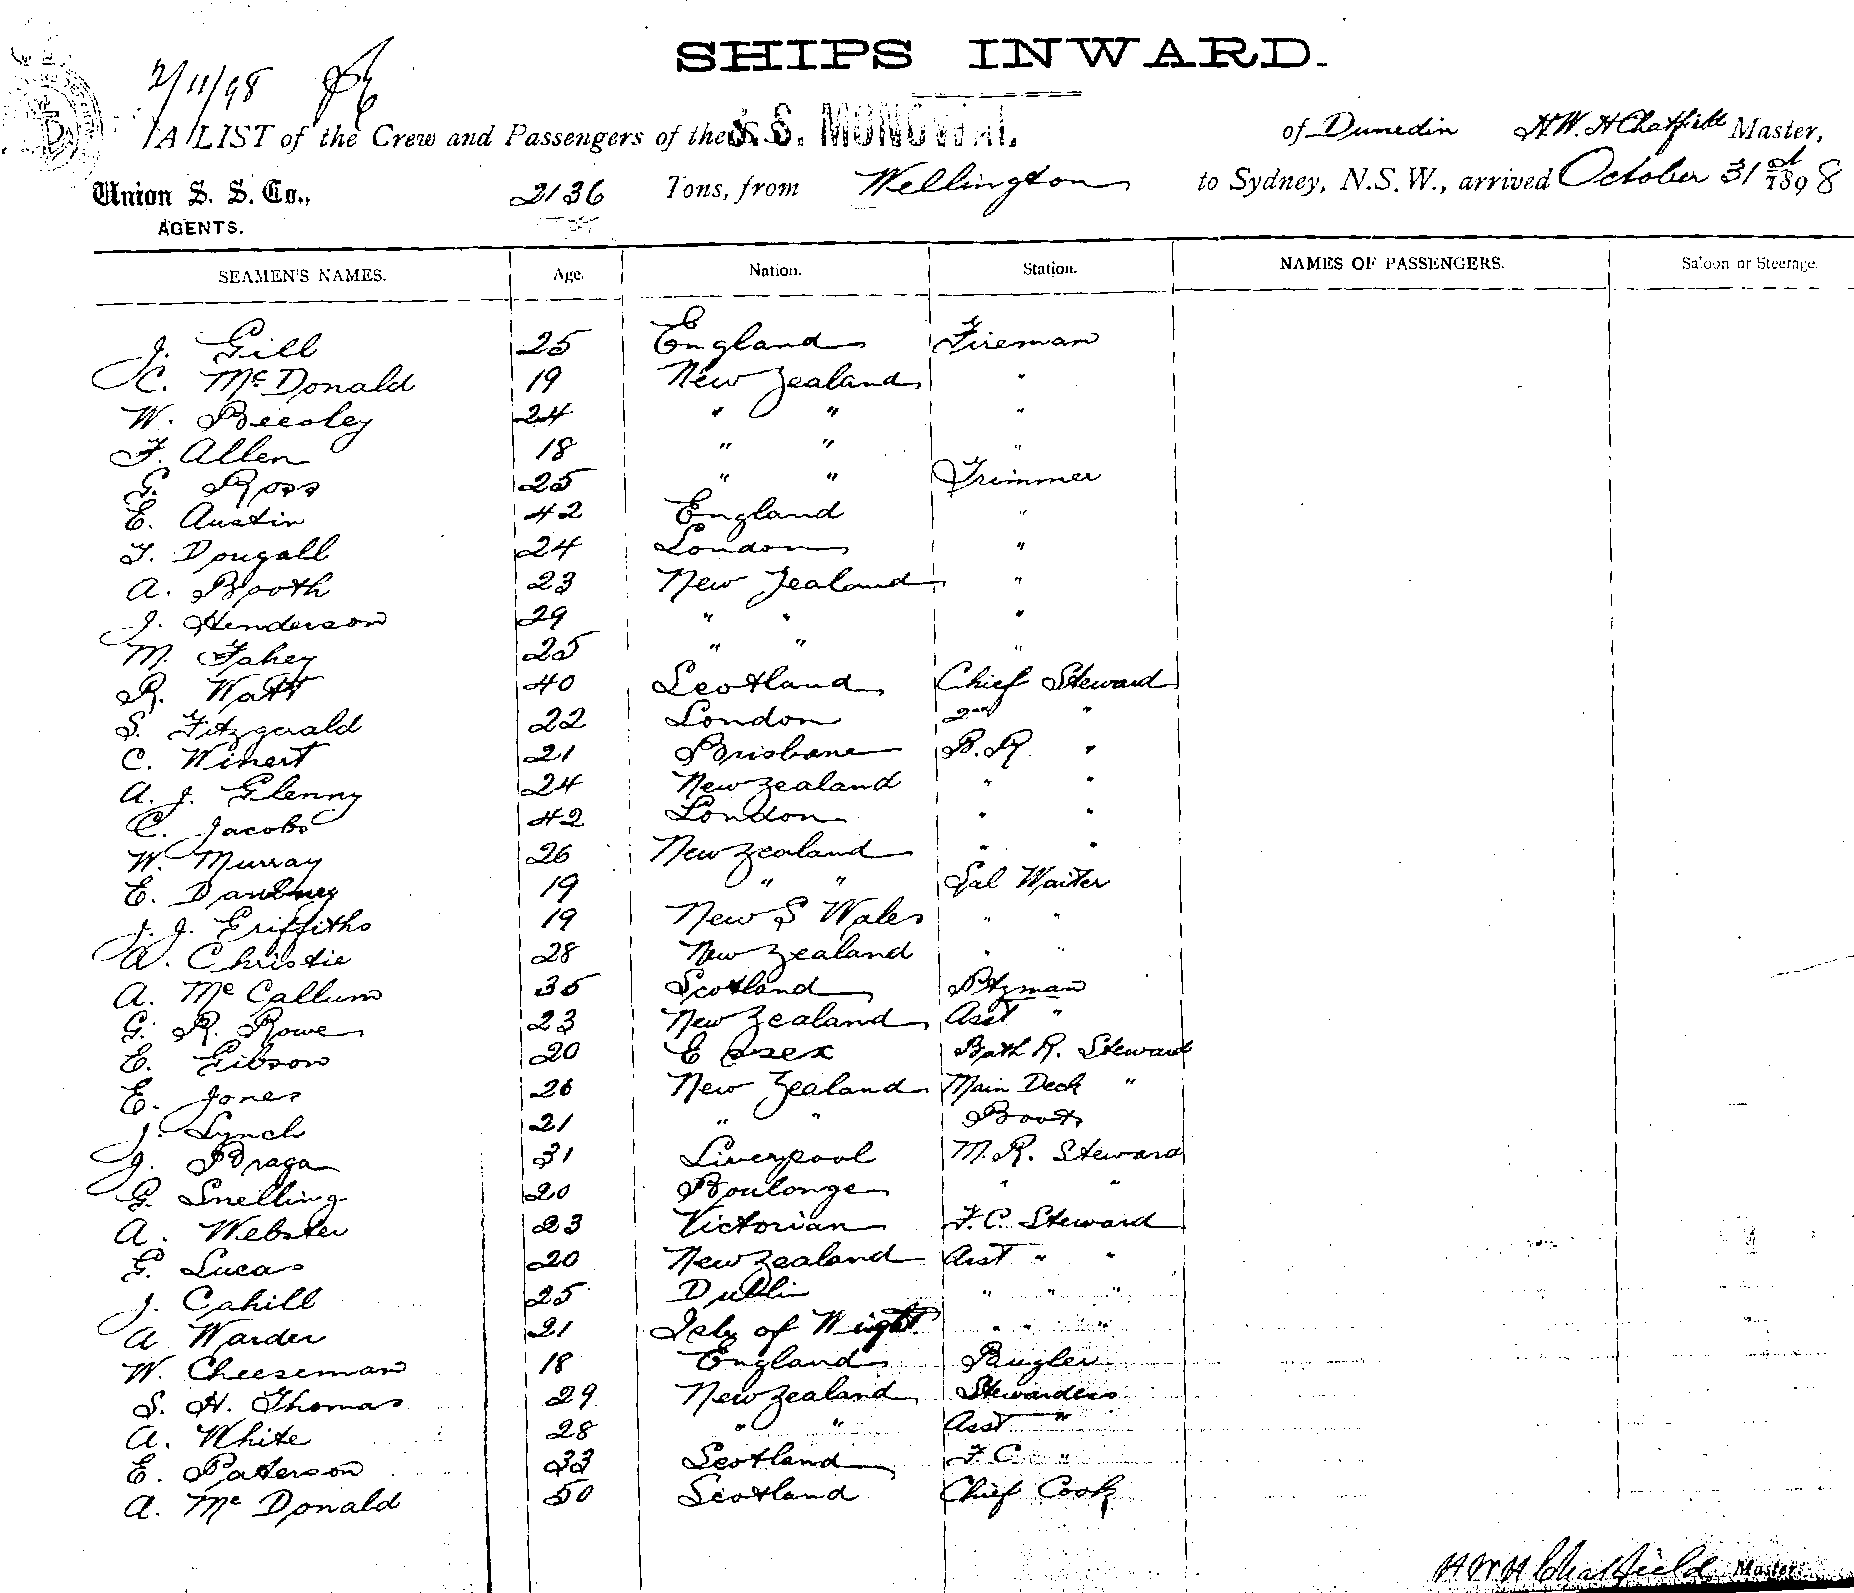 SHIPS INWARD.
2/11/98
A LIST of the Crew and Passengers of the S. S. MONOWAI. of Dunedin H.W.H Chatfield Master,
Union S. S. Co., 2136 Tons, from Wellington to Sydney, N.S.W., arrived October 31st 1898
AGENTS.
SEAMEN'S NAMES. Age. Nation. Station. NAMES OF PASSENGERS. Saloon or Steerage.
J. Gill 25 England Fireman
C. McDonald 19 New Zealand "
W. Beesley 24 " " "
F. Allen 18 " " "
G. Ross 25 " " Trimmer
E. Austin 42 England "
T. Dougall 24 London "
A. Booth 23 New Zealand "
J. Henderson 29 " " "
M. Fahey 25 " " "
R. Watt 40 Scotland Chief Steward
S. Fitzgerald 22 London 2nd "
C. Winert 21 Brisbane B.R. "
A. J. Glenny 24 New Zealand " "
C. Jacobs 42 London " "
W. Murray 26 New Zealand " "
E. 19 " " Sal Waiter
J. J. Griffiths 19 New S Wales " "
A. Christie 28 New Zealand " "
A. McCallum 35 Scotland Ptyman
G. R. Rowe 23 New Zealand Asst "
E. Gibson 20 Essex Bath R. Steward
E. Jones 26 New Zealand Main Deck "
J. Lynch 21 " " Boots
J. Braga 31 Liverpool M.R. Steward
G. Snelling 20 Boulonge " "
A. Webster 23 Victorian F.C. Steward
G. Lucas 20 New Zealand Asst " "
J. Cahill 25 Dublin " " "
A Warder 21 of Wight " " "
W. Cheeseman 18 England Bugler
S. H. Thomas 29 New Zealand Stewardess
A. White 28 " " Asst "
E. Paterson 33 Scotland F.C. "
A. McDonald 50 Scotland Chief Cook
H W H Chatfield Master